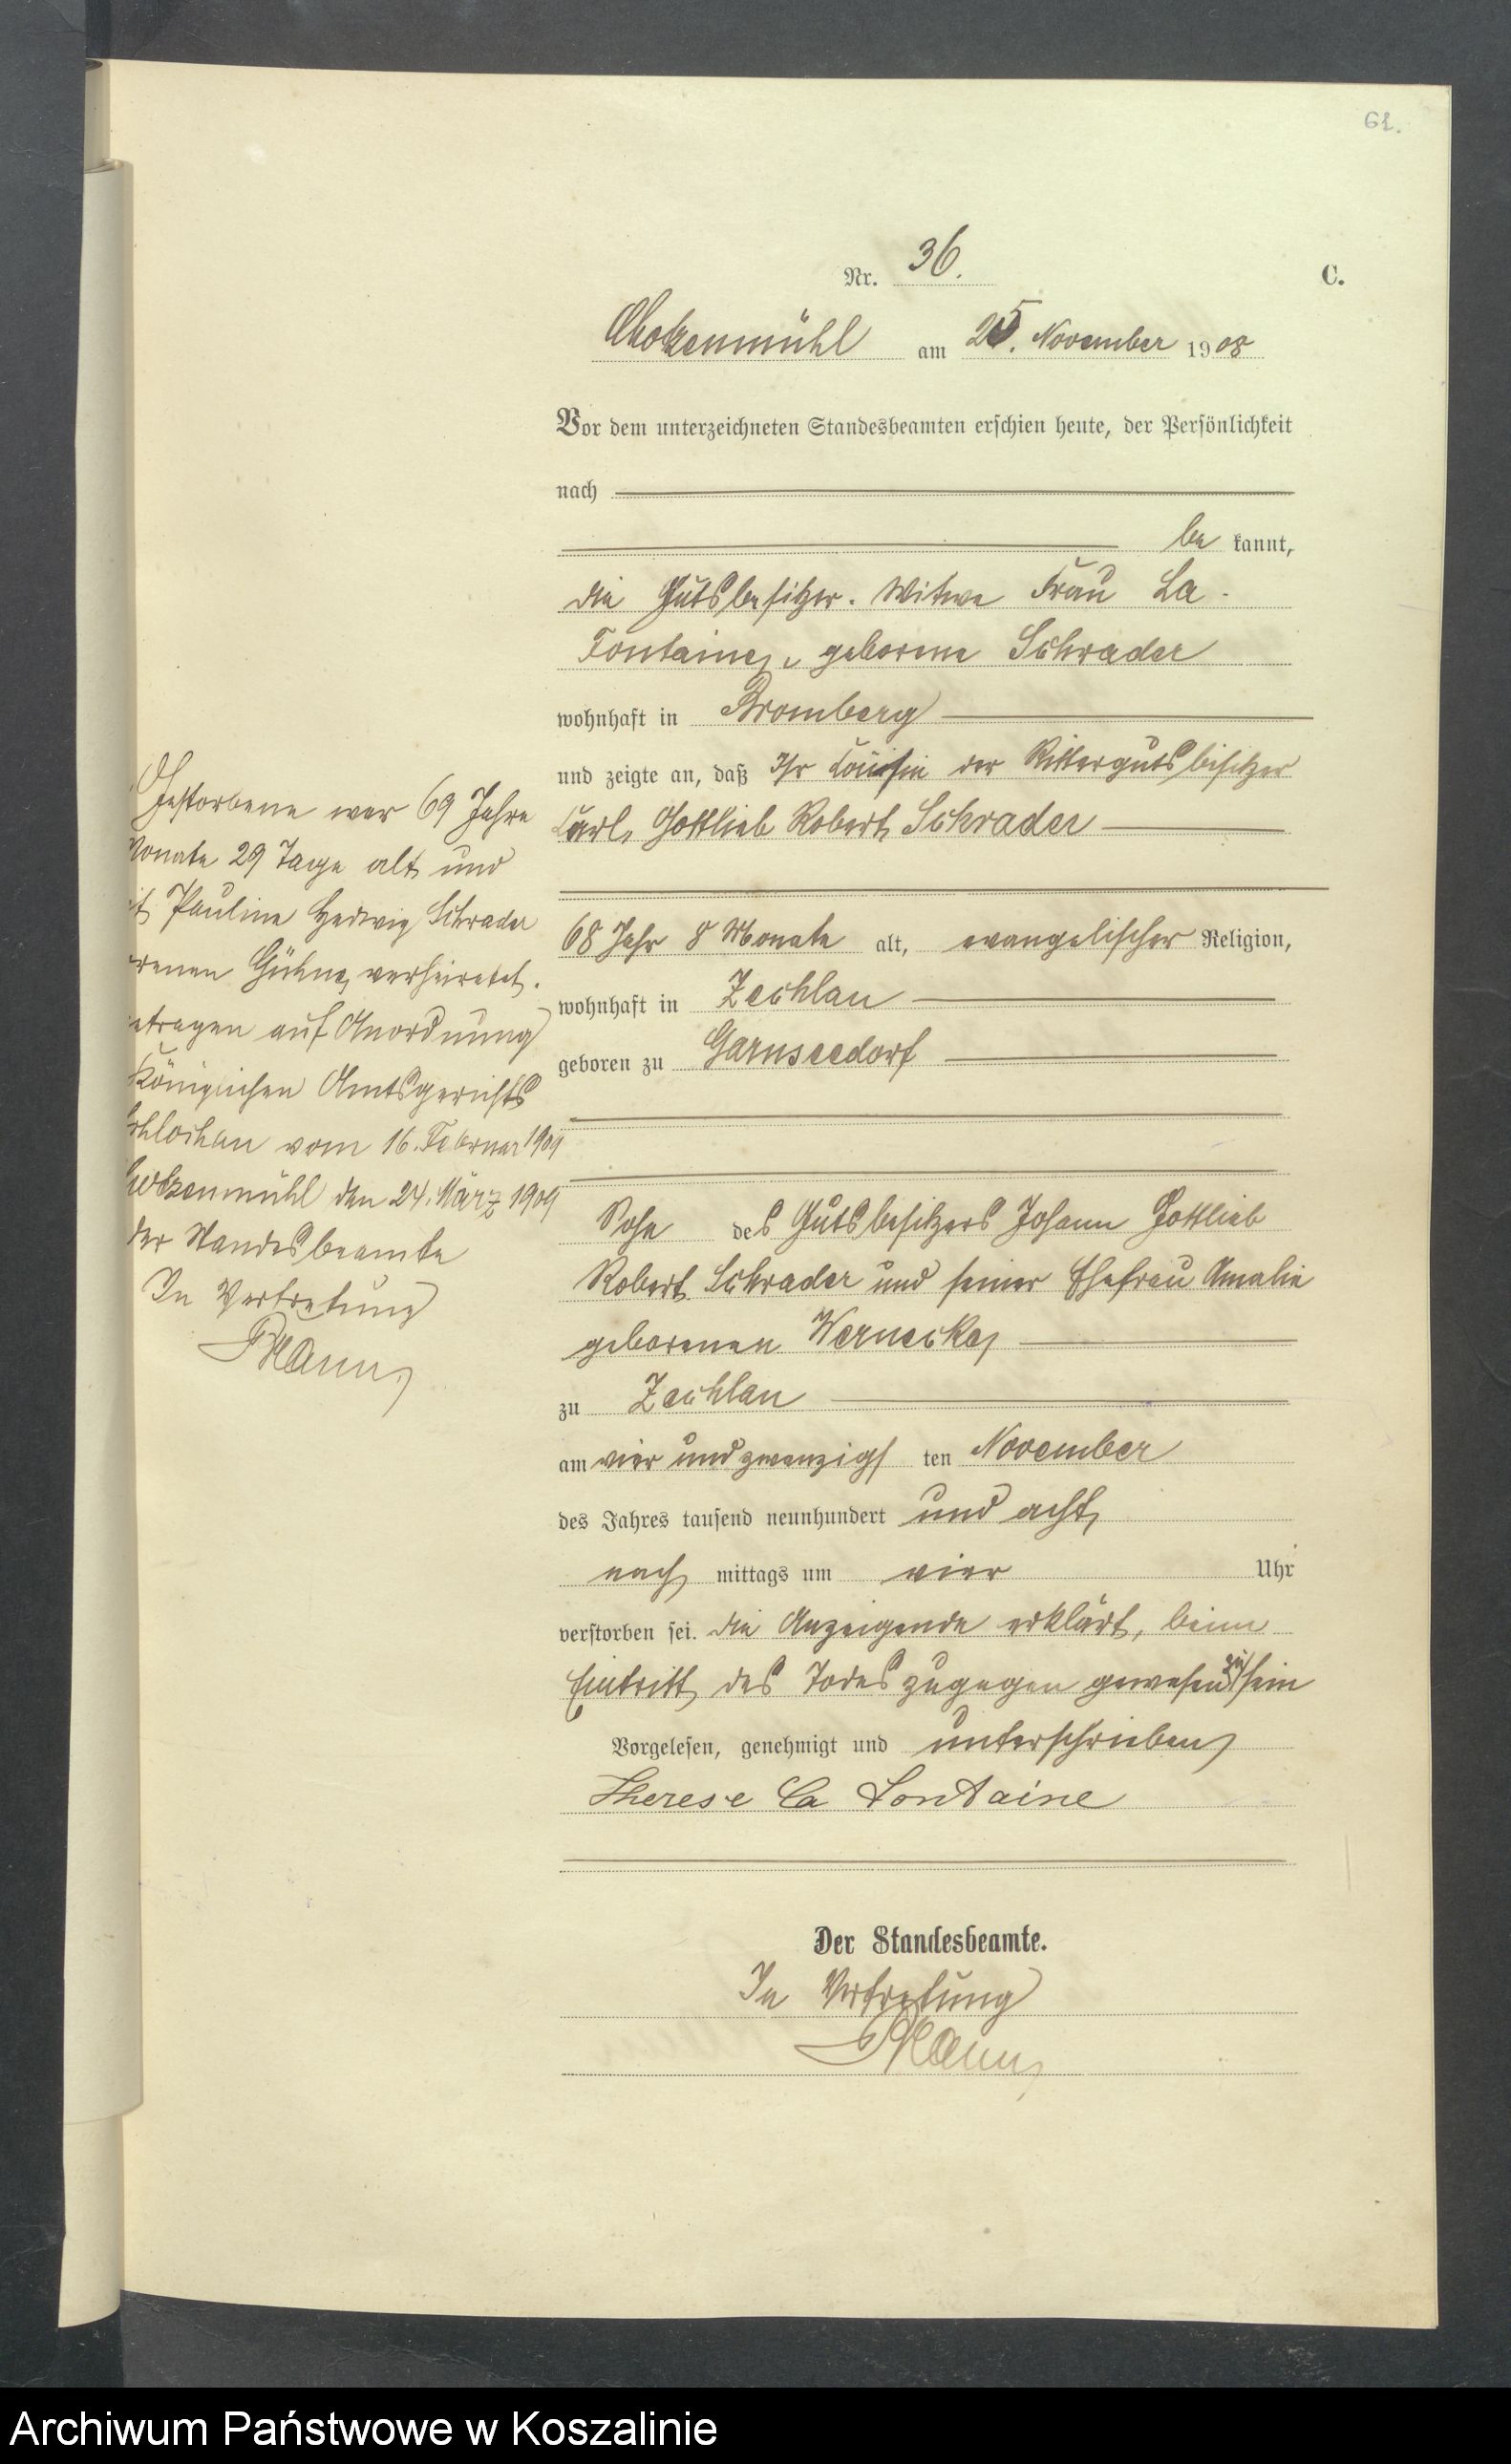 61.
Nr. 36. C.
Chotzenmühl am 25. November 1908
Vor dem unterzeichneten Standesbeamten erschien heute, der Persönlichkeit
nach
be kannt,
die Gutsbesitzer. Witwe Frau La
Fontaine, geborene Schrader
wohnhaft in Bromberg
und zeigte an, daß Ihr der Rittergutsbesitzer
Carl, Gottlieb Robert Schrader
68 Jahr 8 Monate alt, evangelischer Religion,
wohnhaft in Zechlau
geboren zu Garnseedorf
Sohn des Gutsbesitzers Johann Gottlieb
Robert Schrader und seiner Ehefrau Amalie
geborenen Wernecke
zu Zechlau
am vier und zwanzigs ten November
des Jahres tausend neunhundert und acht
nach mittags um vier Uhr
verstorben sei. die Anzeigende erklärt, beim
Eintritt des Todes zugegen gewesen zu sein
Vorgelesen, genehmigt und unterschrieben
Therese La Fontaine
Der Standesbeamte.
In Vertretung
Gestorbene war 69 Jahre
Monate 29 Tage alt und
t Pauline Hedwig Schrader
renen verheiratet.
etragen auf Anordnung
Königlichen Amtsgerichts
Schlochau vom 16. Februar 1909
hotzenmühl den 24. März 1909
der Standesbeamte
In Vertretung
Archiwum Państwowe w Koszalinie